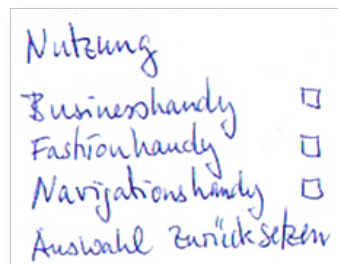 Nutzung
Businesshandy
Fashionhandy
Navigationshandy
Auswahl zurücksetzen